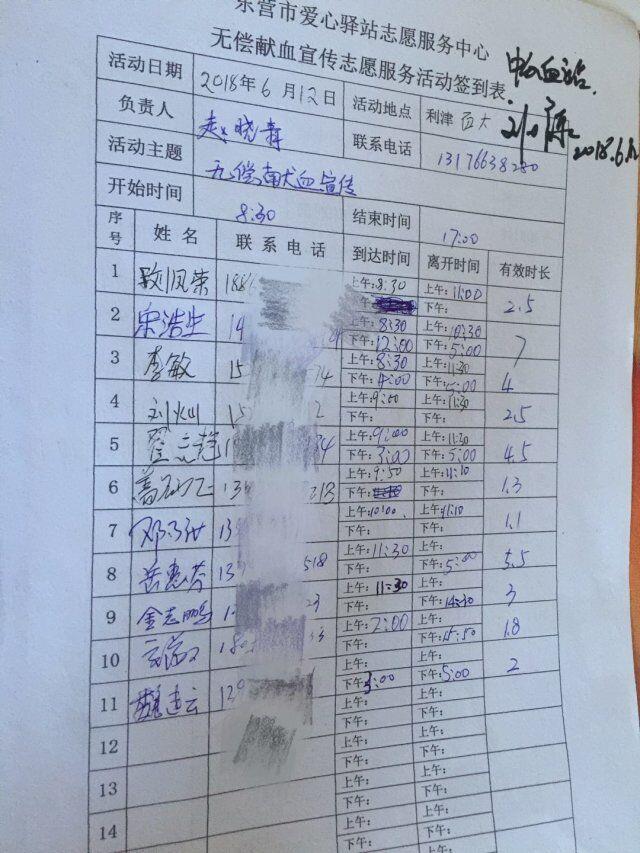 东营市爱心驿站志愿服务中心
无偿献血宣传志愿服务活动签到表
活动日期 2018年6月12日 活动地点 利津百大
负责人 联系电话 13176638280
2018.6.12
活动主题 无偿献血宣传
开始时间 8:30 结束时间 17:00
序号 姓名 联系电话 到达时间 离开时间 有效时长
1 刘凤荣 上午:8:30 上午:11:00 2.5
下午:
2 宋浩生 上午:8:30 上午:10:30 7
下午:12:00 下午:5:00
3 李敏 15 74 上午:8:30 上午:11:30 4
下午:4:00 下午:5:00
4 刘灿 15 2 上午:9:00 上午:11:30 2.5
下午: 下午:
5 上午:9:00 上午:11:30 4.5
下午:3:00 下午:5:00
6 13 上午:9:50 上午:11:10 1.3
下午: 下午:
7 上午:10:00 上午:11:10 1.1
下午: 下午:
8 岳惠芬 13 518 上午:11:30 上午: 5.5
下午: 下午:5:00
9 金志鹏 23 上午:11:30 上午: 3
下午: 下午:14:30
10 上午:2:00 上午: 1.8
下午: 下午:15:50
11 上午: 上午: 2
下午:3:00 下午:5:00
12 上午: 上午:
下午: 下午:
13 上午: 上午:
下午: 下午:
14 上午: 上午:
下午: